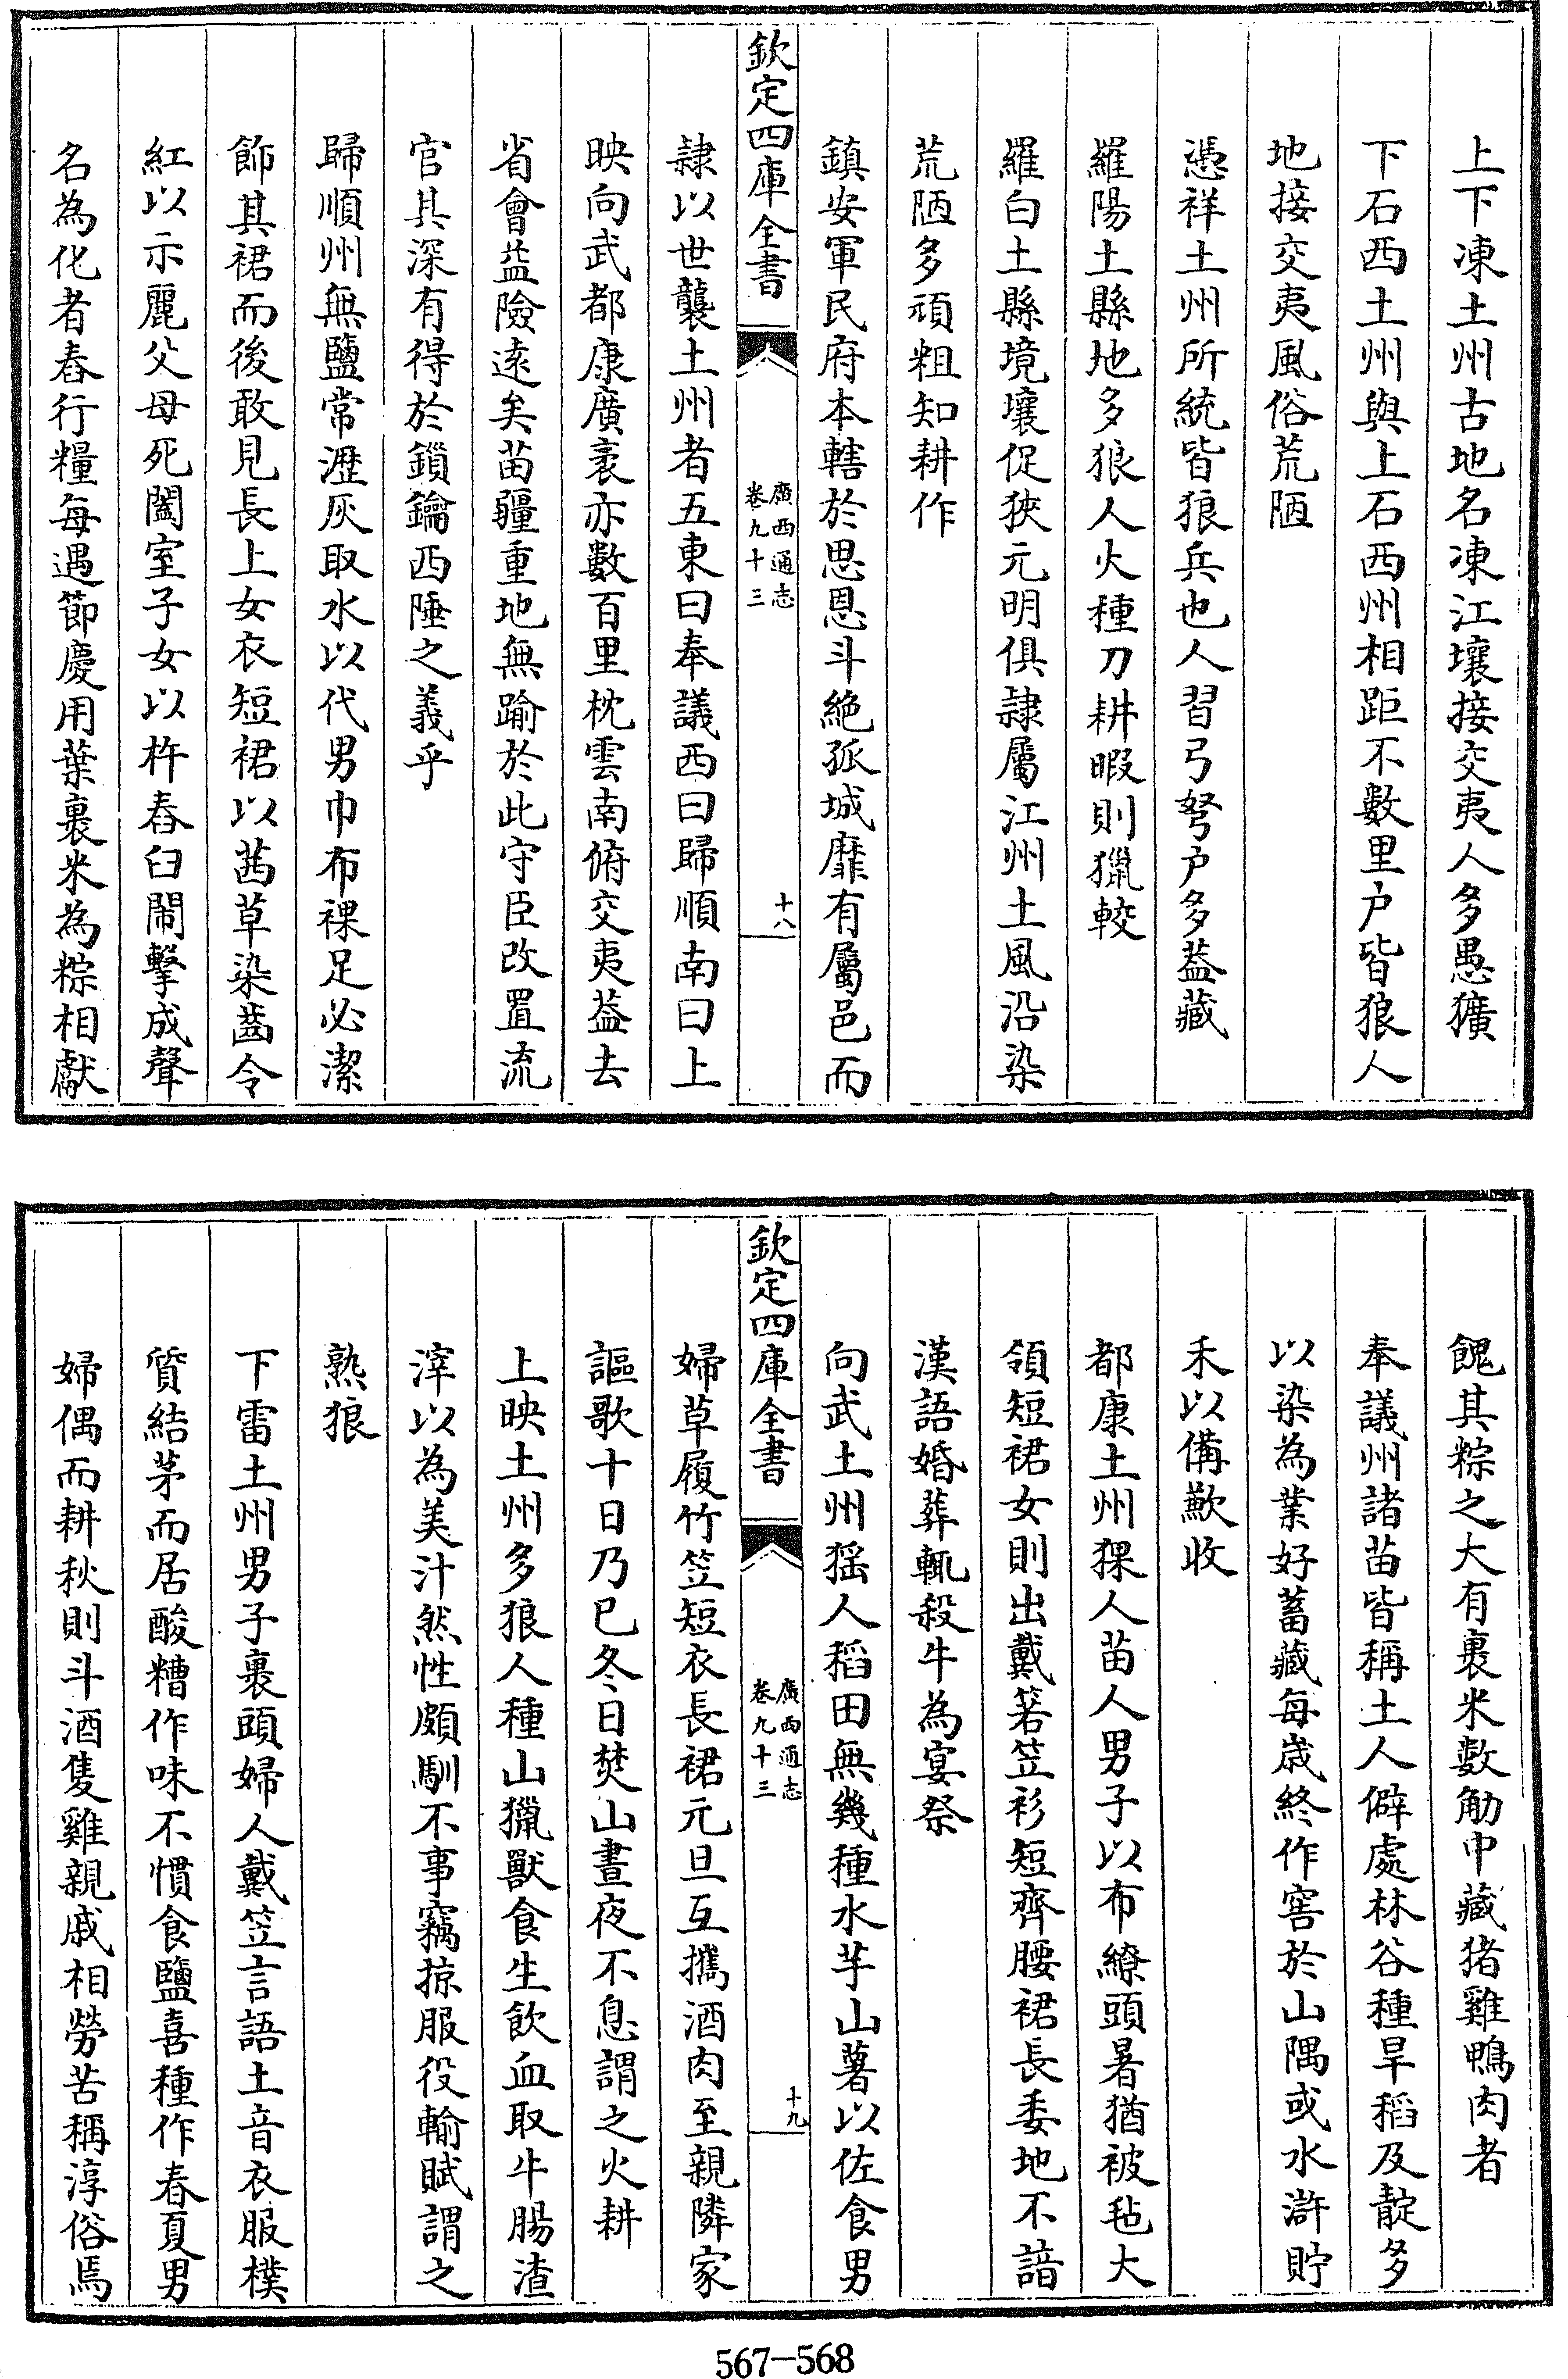 上下凍土州古地名凍江壤接交夷人多愚獷
下石西土州與上石西州相距不數里户皆狼人
地接交夷風俗荒陋
憑祥土州所統皆狼兵也人習弓弩户多葢藏
羅陽土縣地多狼人火種刀耕暇則獵較
羅白土縣境壤促狹元明俱隷屬江州土風沿染
荒陋多頑粗知耕作
鎮安軍民府本轄於思恩斗絶孤城靡有屬邑而
欽定四庫全書
廣西通志
卷九十三
十八
隷以世襲土州者五東曰奉議西曰歸順南曰上
映向武都康廣袤亦數百里枕雲南俯交夷葢去
省會益險逺矣苗疆重地無踰於此守臣改置流
官其深有得於鎻鑰西陲之義乎
歸順州無鹽常瀝灰取水以代男巾布裸足必潔
飾其裙而後敢見長上女衣短裙以茜草染齒令
紅以示麗父母死闔室子女以杵舂臼鬧擊成聲
名為化者舂行糧每遇節慶用葉裹米為粽相獻
餽其粽之大有裹米数觔中藏猪雞鴨肉者
奉議州諸苗皆稱土人僻處林谷種旱稻及靛多
以染為業好蓄藏每歳終作窖於山隅或水滸貯
禾以備歉收
都康土州猓人苗人男子以布繚頭暑猶被毡大
領短裙女則出戴箬笠衫短齊腰裙長委地不諳
漢語婚葬輒殺牛為宴祭
向武土州猺人稻田無幾種水芋山薯以佐食男
欽定四庫全書
廣西通志
卷九十三
十九
婦草履竹笠短衣長裙元旦互攜酒肉至親隣家
謳歌十日乃已冬日焚山晝夜不息謂之火耕
上映土州多狼人種山獵獸食生飲血取牛腸渣
滓以為美汁然性頗馴不事竊掠服役輸賦謂之
熟狼
下雷土州男子裹頭婦人戴笠言語土音衣服樸
質結茅而居酸糟作味不慣食鹽喜種作春夏男
婦偶而耕秋則斗酒隻雞親戚相勞苦稱淳俗焉
567-568